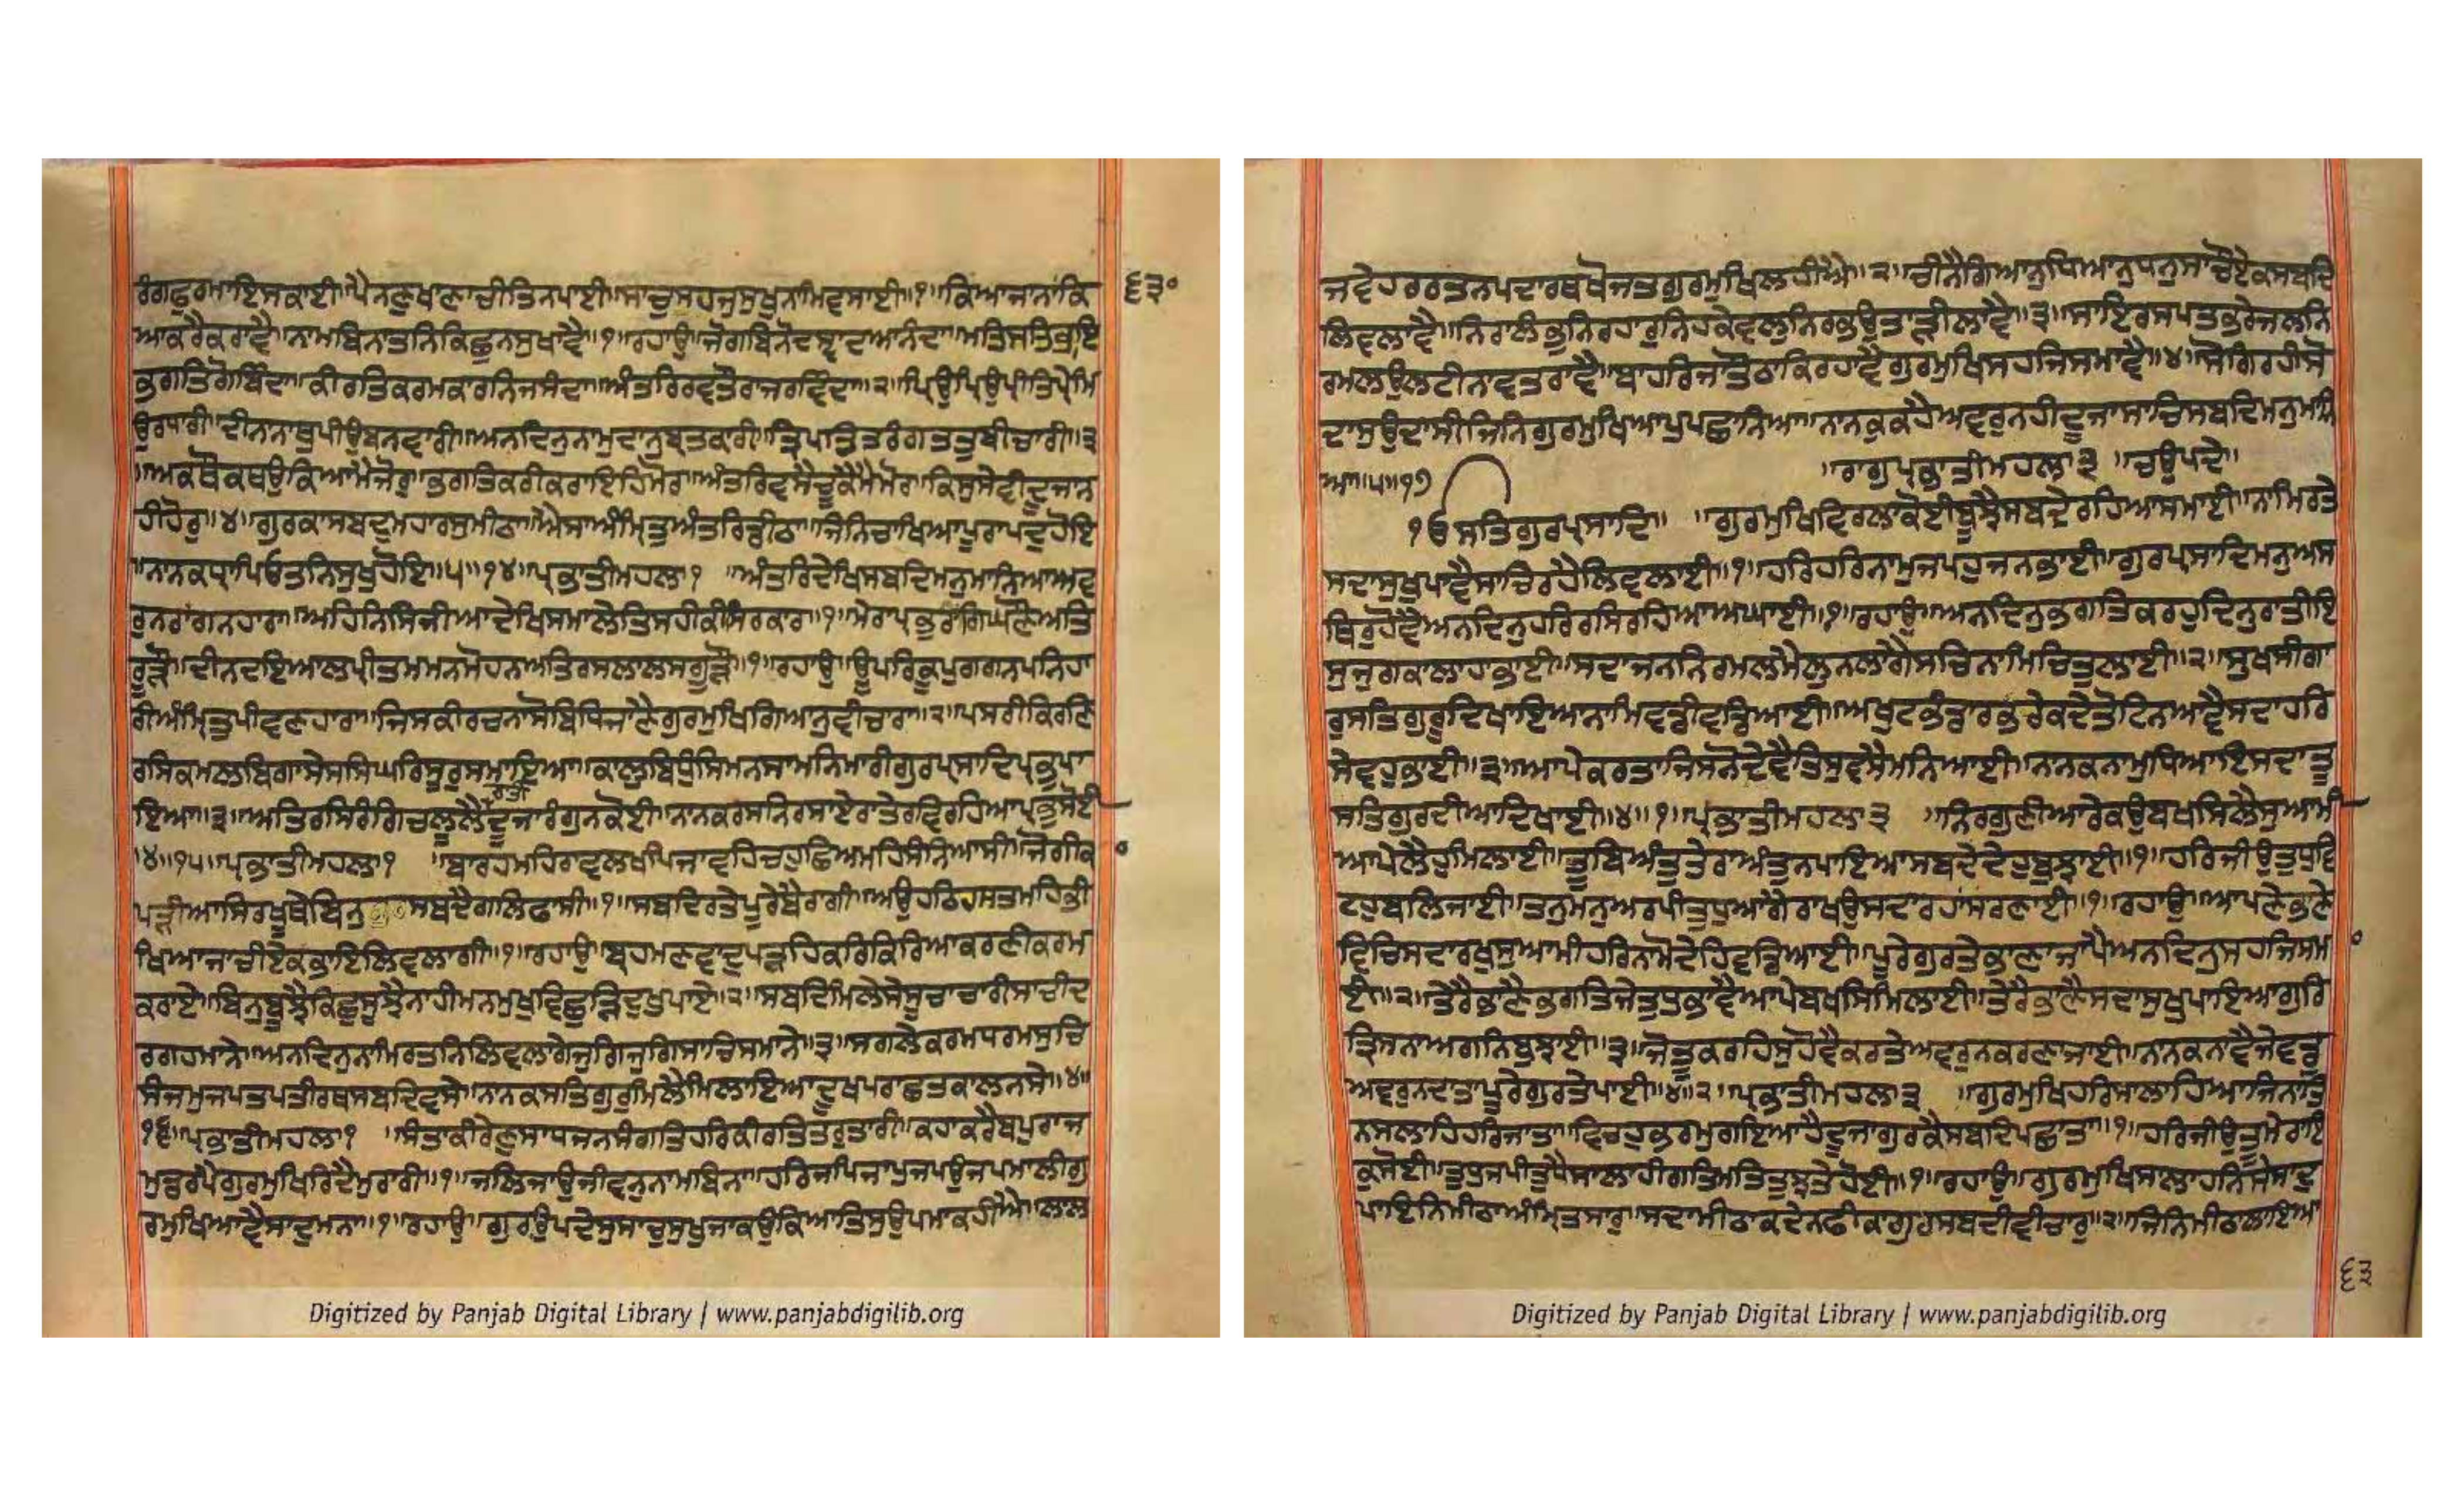 ਰੰਗਛੁਰਮਾਇਸਕਾਈ॥ਪੈਨਣੁਖਾਣਾਚੀਤਿਨਪਾਈ॥ਸਾਚੁਸਹਜੁਸੁਖੁਨਾਮਿਵਸਾਈ॥੧॥ਕਿਆਜਾਨਾਕਿ
੬੩੦
ਆਕਰੈਕਰਾਵੈ॥ਨਾਮਬਿਨਾਤਨਿਕਿਛੁਨਸੁਖਾਵੈ॥੧॥ਰਹਾਉ॥ਜੋਗਬਿਨੋਦਸ੍ਵਾਦਆਨੰਦਾ॥ਮਤਿਸਤਿਭਾਇ
ਭਗਤਿਗੋਬਿੰਦਾ॥ਕੀਰਤਿਕਰਮਕਾਰਨਿਜਸੰਦਾ॥ਅੰਤਰਿਰਵਤੌਰਾਜਰਵਿੰਦਾ॥੨॥ਪ੍ਰਿਉਪ੍ਰਿਉਪ੍ਰੀਤਿਪ੍ਰੇਮਿ
ਉਰਧਾਰੀ॥ਦੀਨਾਨਾਥੁਪੀਉਬਨਵਾਰੀ॥ਅਨਦਿਨੁਨਾਮੁਦਾਨੁਬ੍ਰਤਕਾਰੀ॥ਤ੍ਰਿਪਤਿਤਰੰਗਤਤੁਬੀਚਾਰੀ॥੩
॥ਅਕਥੌਕਥਉਕਿਆਮੈਜੋਰੁ॥ਭਗਤਿਕਰੀਕਰਾਇਹਿਮੋਰ॥ਅੰਤਰਿਵਸੈਚੂਕੈਮੈਮੋਰ॥ਕਿਸੁਸੇਵੀਦੂਜਾਨ
ਹੀਹੋਰੁ॥੪॥ਗੁਰਕਾਸਬਦੁਮਹਾਰਸੁਮੀਠਾ॥ਐਸਾਅੰਮ੍ਰਿਤੁਅੰਤਰਿਡੀਠਾ॥ਜਿਨਿਚਾਖਿਆਪੂਰਾਪਦੁਹੋਇ
॥ਨਾਨਕਧ੍ਰਾਪਿਓਤਨਿਸੁਖੁਹੋਇ॥੫॥੧੪॥ਪ੍ਰਭਾਤੀਮਹਲਾ੧ ॥ਅੰਤਰਿਦੇਖਿਸਬਦਿਮਨੁਮਾਨਿਆਅਵ
ਰੁਨਰਾਂਗਨਹਾਰਾ॥ਅਹਿਨਿਸਿਜੀਆਦੇਖਿਸਮਾਲੇਤਿਸਹੀਕੀਸਿਰਕਾਰਾ॥੧॥ਮੇਰਾਪ੍ਰਭੁਰਾਂਗਿਘਣੌਅਤਿ
ਰੂੜੌ॥ਦੀਨਦਇਆਲਪ੍ਰੀਤਮਮਨਮੋਹਨਅਤਿਰਸਲਾਲਸਗੂੜੌ॥੧॥ਰਹਾਉ॥ਊਪਰਿਕੂਪੁਗਗਨਪਨਿਹਾ
ਰੀਅੰਮ੍ਰਿਤੁਪੀਵਣਹਾਰਾ॥ਜਿਸਕੀਰਚਨਾਸੋਬਿਧਿਜਾਣੈਗੁਰਮੁਖਿਗਿਆਨੁਵੀਚਾਰਾ॥੨॥ਪਸਰੀਕਿਰਣਿ
ਰਸਿਕਮਲਬਿਗਾਸੇਸਸਿਘਰਿਸੂਰੁਸਮਾਇਆ॥ਕਾਲੁਬਿਧੁੰਸਿਮਨਸਾਮਨਿਮਾਰੀਗੁਰਪ੍ਰਸਾਦਿਪ੍ਰਭੁਪਾ
ਇਆ॥੩॥ਅਤਿਰਸਿਰੰਗਿਚਲੂਲੈਰਾਤੀਦੂਜਾਰੰਗੁਨਕੋਈ॥ਨਾਨਕਰਸਨਿਰਸਾਏਰਾਤੇਰਵਿਰਹਿਆਪ੍ਰਭੁਸੋਈ
॥੪॥੧੫॥ਪ੍ਰਭਾਤੀਮਹਲਾ੧ ॥ਬਾਰਹਮਹਿਰਾਵਲਖਪਿਜਾਵਹਿਚਹੁਛਿਅਮਹਿਸੰਨਿਆਸੀ॥ਜੋਗੀਕਾ
ਪੜੀਆਸਿਰਖੂਥੇਬਿਨੁਸਬਦੈਗਲਿਫਾਸੀ॥੧॥ਸਬਦਿਰਤੇਪੂਰੇਬੈਰਾਗੀ॥ਅਉਹਠਿਹਸਤਮਹਿਭੀ
ਖਿਆਜਾਚੀਏਕਭਾਇਲਿਵਲਾਗੀ॥੧॥ਰਹਾਉ॥ਬ੍ਰਹਮਣਵਾਦੁਪੜਹਿਕਰਿਕਿਰਿਆਕਰਣੀਕਰਮ
ਕਰਾਏ॥ਬਿਨੁਬੂਝੈਕਿਛੁਸੂਝੈਨਾਹੀਮਨਮੁਖੁਵਿਛੁੜਿਦੁਖੁਪਾਏ॥੨॥ਸਬਦਿਮਿਲੇਸੇਸੂਚਾਚਾਰੀਸਾਚੀਦ
ਰਗਹਮਾਨੇ॥ਅਨਦਿਨੁਨਾਮਿਰਤਨਿਲਿਵਲਾਗੇਜੁਗਿਜੁਗਿਸਾਚਿਸਮਾਨੇ॥੩॥ਸਗਲੇਕਰਮਧਰਮਸੁਚਿ
ਸੰਜਮੁਜਪਤਪਤੀਰਥਸਬਦਿਵਸੇ॥ਨਾਨਕਸਤਿਗੁਰੁਮਿਲੈਮਿਲਾਇਆਦੂਖਪਰਾਛਤਕਾਲਨਸੇ॥੪॥
੧੬॥ਪ੍ਰਭਾਤੀਮਹਲਾ੧ ॥ਸੰਤਾਕੀਰੇਣੁਸਾਧਜਨਸੰਗਤਿਹਰਿਕੀਰਤਿਤਰੁਤਾਰੀ॥ਕਹਾਕਰੈਬਪੁਰਾਜ
ਮੁਡਰਪੈਗੁਰਮੁਖਿਰਿਦੈਮੁਰਾਰੀ॥੧॥ਜਲਿਜਾਉਜੀਵਨੁਨਾਮਬਿਨਾ॥ਹਰਿਜਪਿਜਾਪੁਜਪਉਜਪਮਾਲੀਗੁ
ਰਮੁਖਿਆਵੈਸਾਦੁਮਨਾ॥੧॥ਰਹਾਉ॥ਗੁਰਉਪਦੇਸੁਸਾਚੁਸੁਖੁਜਾਕਉਕਿਆਤਿਸੁਉਪਮਾਕਹੀਐ॥ਲਾਲ
Digitized by Panjab Digital Library | www.panjabdigilib.org
ਜਵੇਹਰਰਤਨਪਦਾਰਥਖੋਜਤਗੁਰਮੁਖਿਲਹੀਐ॥੨॥ਚੀਨੈਗਿਆਨੁਧਿਆਨੁਧਨੁਸਾਚੌਏਕਸਬਦਿ
ਲਿਵਲਾਵੈ॥ਨਿਰਾਲੰਭੁਨਿਰਹਾਰੁਨਿਹਕੇਵਲੁਨਿਰਭਉਤਾੜੀਲਾਵੈ॥੩॥ਸਾਇਰਸਪਤਭਰੇਜਲਨਿ
ਰਮਲਉਲਟੀਨਾਵਤਰਾਵੈ॥ਬਾਹਰਿਜਾਤੌਠਾਕਿਰਹਾਵੈਗੁਰਮੁਖਿਸਹਜਿਸਮਾਵੈ॥੪॥ਸੋਗਿਰਹੀਸੋ
ਦਾਸੁਉਦਾਸੀਜਿਨਿਗੁਰਮੁਖਿਆਪੁਪਛਾਨਿਆ॥ਨਾਨਕੁਕਹੈਅਵਰੁਨਹੀਦੂਜਾਸਾਚਿਸਬਦਿਮਨੁਮਾਨਿ
ਆ॥੫॥੧੭ ॥ਰਾਗੁਪ੍ਰਭਾਤੀਮਹਲਾ੩ ॥ਚਉਪਦੇ॥
੧ਓਸਤਿਗੁਰਪ੍ਰਸਾਦਿ॥ ॥ਗੁਰਮੁਖਿਵਿਰਲਾਕੋਈਬੂਝੈਸਬਦੇਰਹਿਆਸਮਾਈ॥ਨਾਮਿਰਤੇ
ਸਦਾਸੁਖੁਪਾਵੈਸਾਚਿਰਹੈਲਿਵਲਾਈ॥੧॥ਹਰਿਹਰਿਨਾਮੁਜਪਹੁਜਨਭਾਈ॥ਗੁਰਪ੍ਰਸਾਦਿਮਨੁਅਸ
ਥਿਰੁਹੋਵੈਅਨਦਿਨੁਹਰਿਰਸਿਰਹਿਆਅਘਾਈ॥੧॥ਰਹਾਉ॥ਅਨਦਿਨੁਭਗਤਿਕਰਹੁਦਿਨੁਰਾਤੀਇ
ਸੁਜੁਗਕਾਲਾਹਾਭਾਈ॥ਸਦਾਜਨਨਿਰਮਲਮੈਲੁਨਲਾਗੈਸਚਿਨਾਮਿਚਿਤੁਲਾਈ॥੨॥ਸੁਖੁਸੀਗਾ
ਰੁਸਤਿਗੁਰੂਦਿਖਾਇਆਨਾਮਿਵਡੀਵਡਿਆਈ॥ਅਖੁਟਭੰਡਾਰਭਰੇਕਦੇਤੋਟਿਨਆਵੈਸਦਾਹਰਿ
ਸੇਵਹੁਭਾਈ॥੩॥ਆਪੇਕਰਤਾਜਿਸਨੋਦੇਵੈਤਿਸੁਵਸੈਮਨਿਆਈ॥ਨਾਨਕਨਾਮੁਧਿਆਇਸਦਾਤੂ
ਸਤਿਗੁਰਦੀਆਦਿਖਾਈ॥੪॥੧॥ਪ੍ਰਭਾਤੀਮਹਲਾ੩ ॥ਨਿਰਗੁਣੀਆਰੇਕਉਬਖਸਿਲੈਸੁਆਮੀ
ਆਪੇਲੈਹੁਮਿਲਾਈ॥ਤੂਬਿਅੰਤੁਤੇਰਾਅੰਤੁਨਪਾਇਆਸਬਦੇਦੇਹੁਬੁਝਾਈ॥੧॥ਹਰਿਜੀਉਤੁਧੁਵਿ
ਟਹੁਬਲਿਜਾਈ॥ਤਨੁਮਨੁਅਰਪੀਤੁਧੁਆਗੈਰਾਖਉਸਦਾਰਹਾਂਸਰਣਾਈ॥੧॥ਰਹਾਉ॥ਆਪਣੇਭਾਣੇ
ਵਿਚਿਸਦਾਰਖੁਸੁਆਮੀਹਰਿਨਾਮੋਦੇਹਿਵਡਿਆਈ॥ਪੂਰੇਗੁਰਤੇਭਾਣਾਜਾਪੈਅਨਦਿਨੁਸਹਜਿਸਮਾ
ਈ॥੨॥ਤੇਰੈਭਾਣੈਭਗਤਿਜੇਤੁਧੁਭਾਵੈਆਪੇਬਖਸਿਮਿਲਾਈ॥ਤੇਰੈਭਾਣੈਸਦਾਸੁਖੁਪਾਇਆਗੁਰਿ
ਤ੍ਰਿਸਨਾਅਗਨਿਬੁਝਾਈ॥੩॥ਜੋਤੂਕਰਹਿਸੁਹੋਵੈਕਰਤੇਅਵਰੁਨਕਰਣਾਜਾਈ॥ਨਾਨਕਨਾਵੈਜੇਵਡੁ
ਅਵਰੁਨਦਾਤਾਪੂਰੇਗੁਰਤੇਪਾਈ॥੪॥੨॥ਪ੍ਰਭਾਤੀਮਹਲਾ੩ ॥ਗੁਰਮੁਖਿਹਰਿਸਾਲਾਹਿਆਜਿਨਾਤਿ
ਨਸਲਾਹਿਹਰਿਜਾਤਾ॥ਵਿਚਹੁਭਰਮੁਗਇਆਹੈਦੂਜਾਗੁਰਕੈਸਬਦਿਪਛਾਤਾ॥੧॥ਹਰਿਜੀਉਤੂਮੇਰਾਇ
ਕੁਸੋਈ॥ਤੁਧੁਜਪੀਤੁਧੈਸਾਲਾਹੀਗਤਿਮਤਿਤੁਝਤੇਹੋਈ॥੧॥ਰਹਾਉ॥ਗੁਰਮੁਖਿਸਾਲਾਹਨਿਸੇਸਾਦੁ
ਪਾਇਨਿਮੀਠਾਅੰਮ੍ਰਿਤਸਾਰੁ॥ਸਦਾਮੀਠਾਕਦੇਨਫੀਕਾਗੁਰਸਬਦੀਵੀਚਾਰੁ॥੨॥ਜਿਨਿਮੀਠਾਲਾਇਆ
੬੩
Digitized by Panjab Digital Library | www.panjabdigilib.org